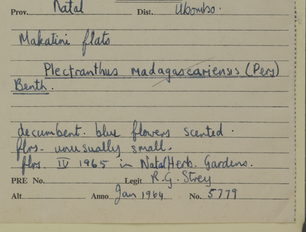 Prov. Natal Dist. Ubombo.
Makatini flats
Plectranthus madagascariensis (Pers)
Benth.
decumbent. blue flowers scented.
flrs. unusually small.
flrs. IV 1965 in Natal Herb. Gardens.
PRE No. Legit R.G. Strey
Alt. Anno Jan 1964 No. 5779